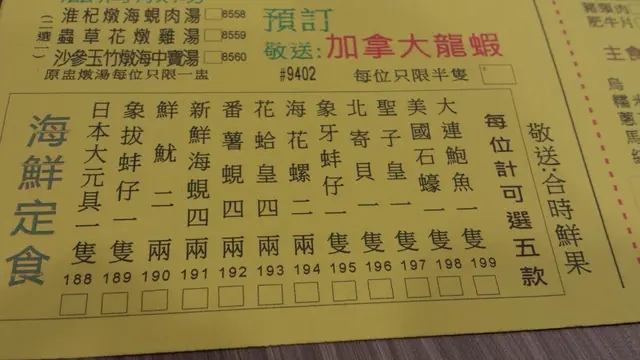 (二選一)
淮杞燉海蜆肉湯 8558
蟲草花燉雞湯 8559
沙參玉竹燉海中寶湯 8560
原盅燉湯每位只限一盅
預訂
敬送:加拿大龍蝦
#9402 每位只限半隻
肥牛片
主食
敬送:合時鮮果
每位計可選五款
大連鮑魚一隻 199
美國石蠔一隻 198
聖子皇一隻 197
北寄貝一隻 196
象牙蚌仔一隻 195
海花螺二兩 194
花蛤皇四兩 193
番薯蜆四兩 192
新鮮海蜆四兩 191
鮮魷二兩 190
象拔蚌仔一隻 189
日本大元具一隻 188
海鮮定食